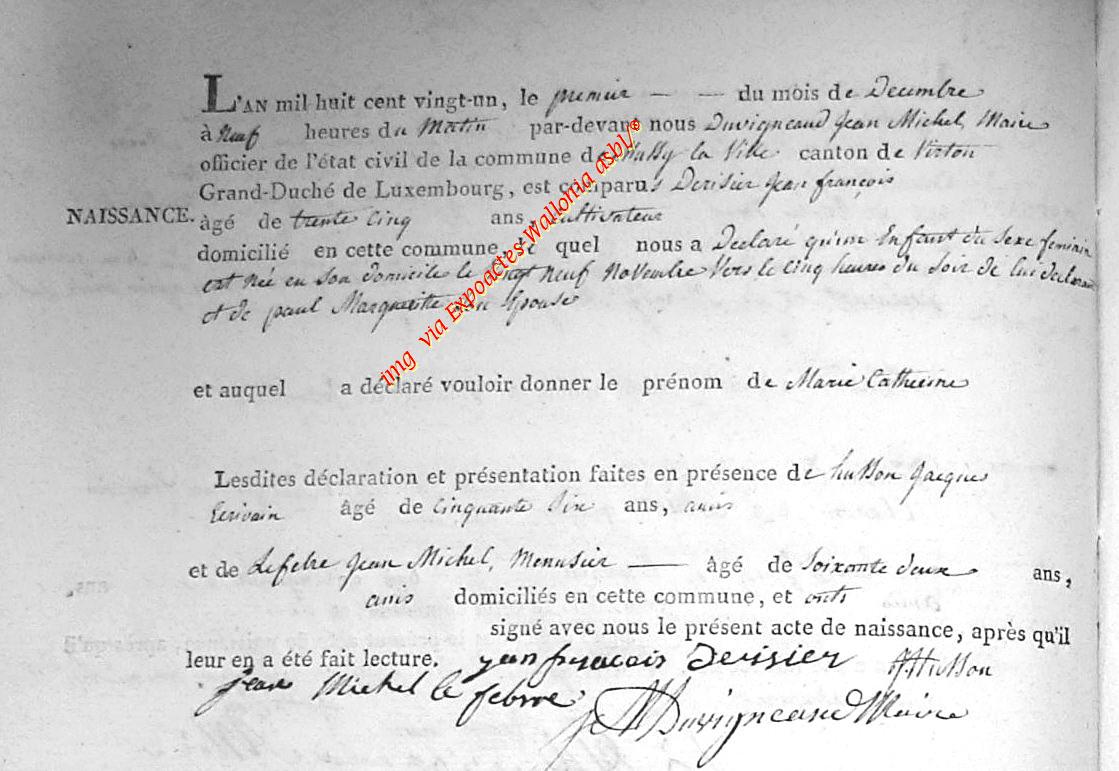 L'AN mil huit cent vingt-un, le premier — — du mois de Decembre
à Neuf heures du Matin par-devant nous Duvigneaud Jean Michel, Maire
officier de l'état civil de la commune de Mussy la Ville canton de Virton
Grand-Duché de Luxembourg, est comparus Derisier Jean françois
NAISSANCE. âgé de trente Cinq ans, Cultivateur
domicilié en cette commune, le quel nous a Declaré qu'un Enfant du Sexe feminin
est Née en Son domicile le Vingt Neuf Novembre Vers le Cinq heures du Soir de lui declarant
et de paul Marguerite son Epouse
et auquel a déclaré vouloir donner le prénom de Marie Catherine
Lesdites déclaration et présentation faites en présence de husson Jacques
Ecrivain âgé de Cinquante Six ans, amis
et de Lefebre Jean Michel, Menusier — âgé de Soixante deux ans,
amis domiciliés en cette commune, et onts
signé avec nous le présent acte de naissance, après qu'il
leur en a été fait lecture. jean francois Derisier JHusson
jean Michel le febvre JM Duvigneaud Maire
img via Expoactes-Wallonia asbl/©